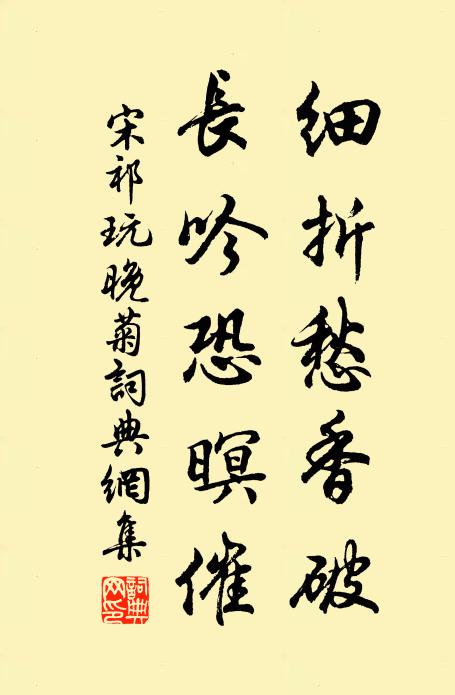 細折愁香破
長吟恐暝催
宋祁玩晚菊詞典網集
詞典网印